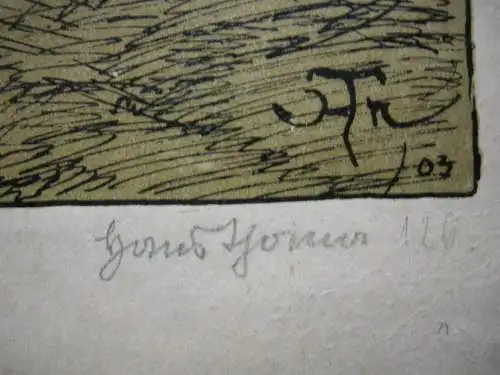 HTh
03
Hans Thoma 126.